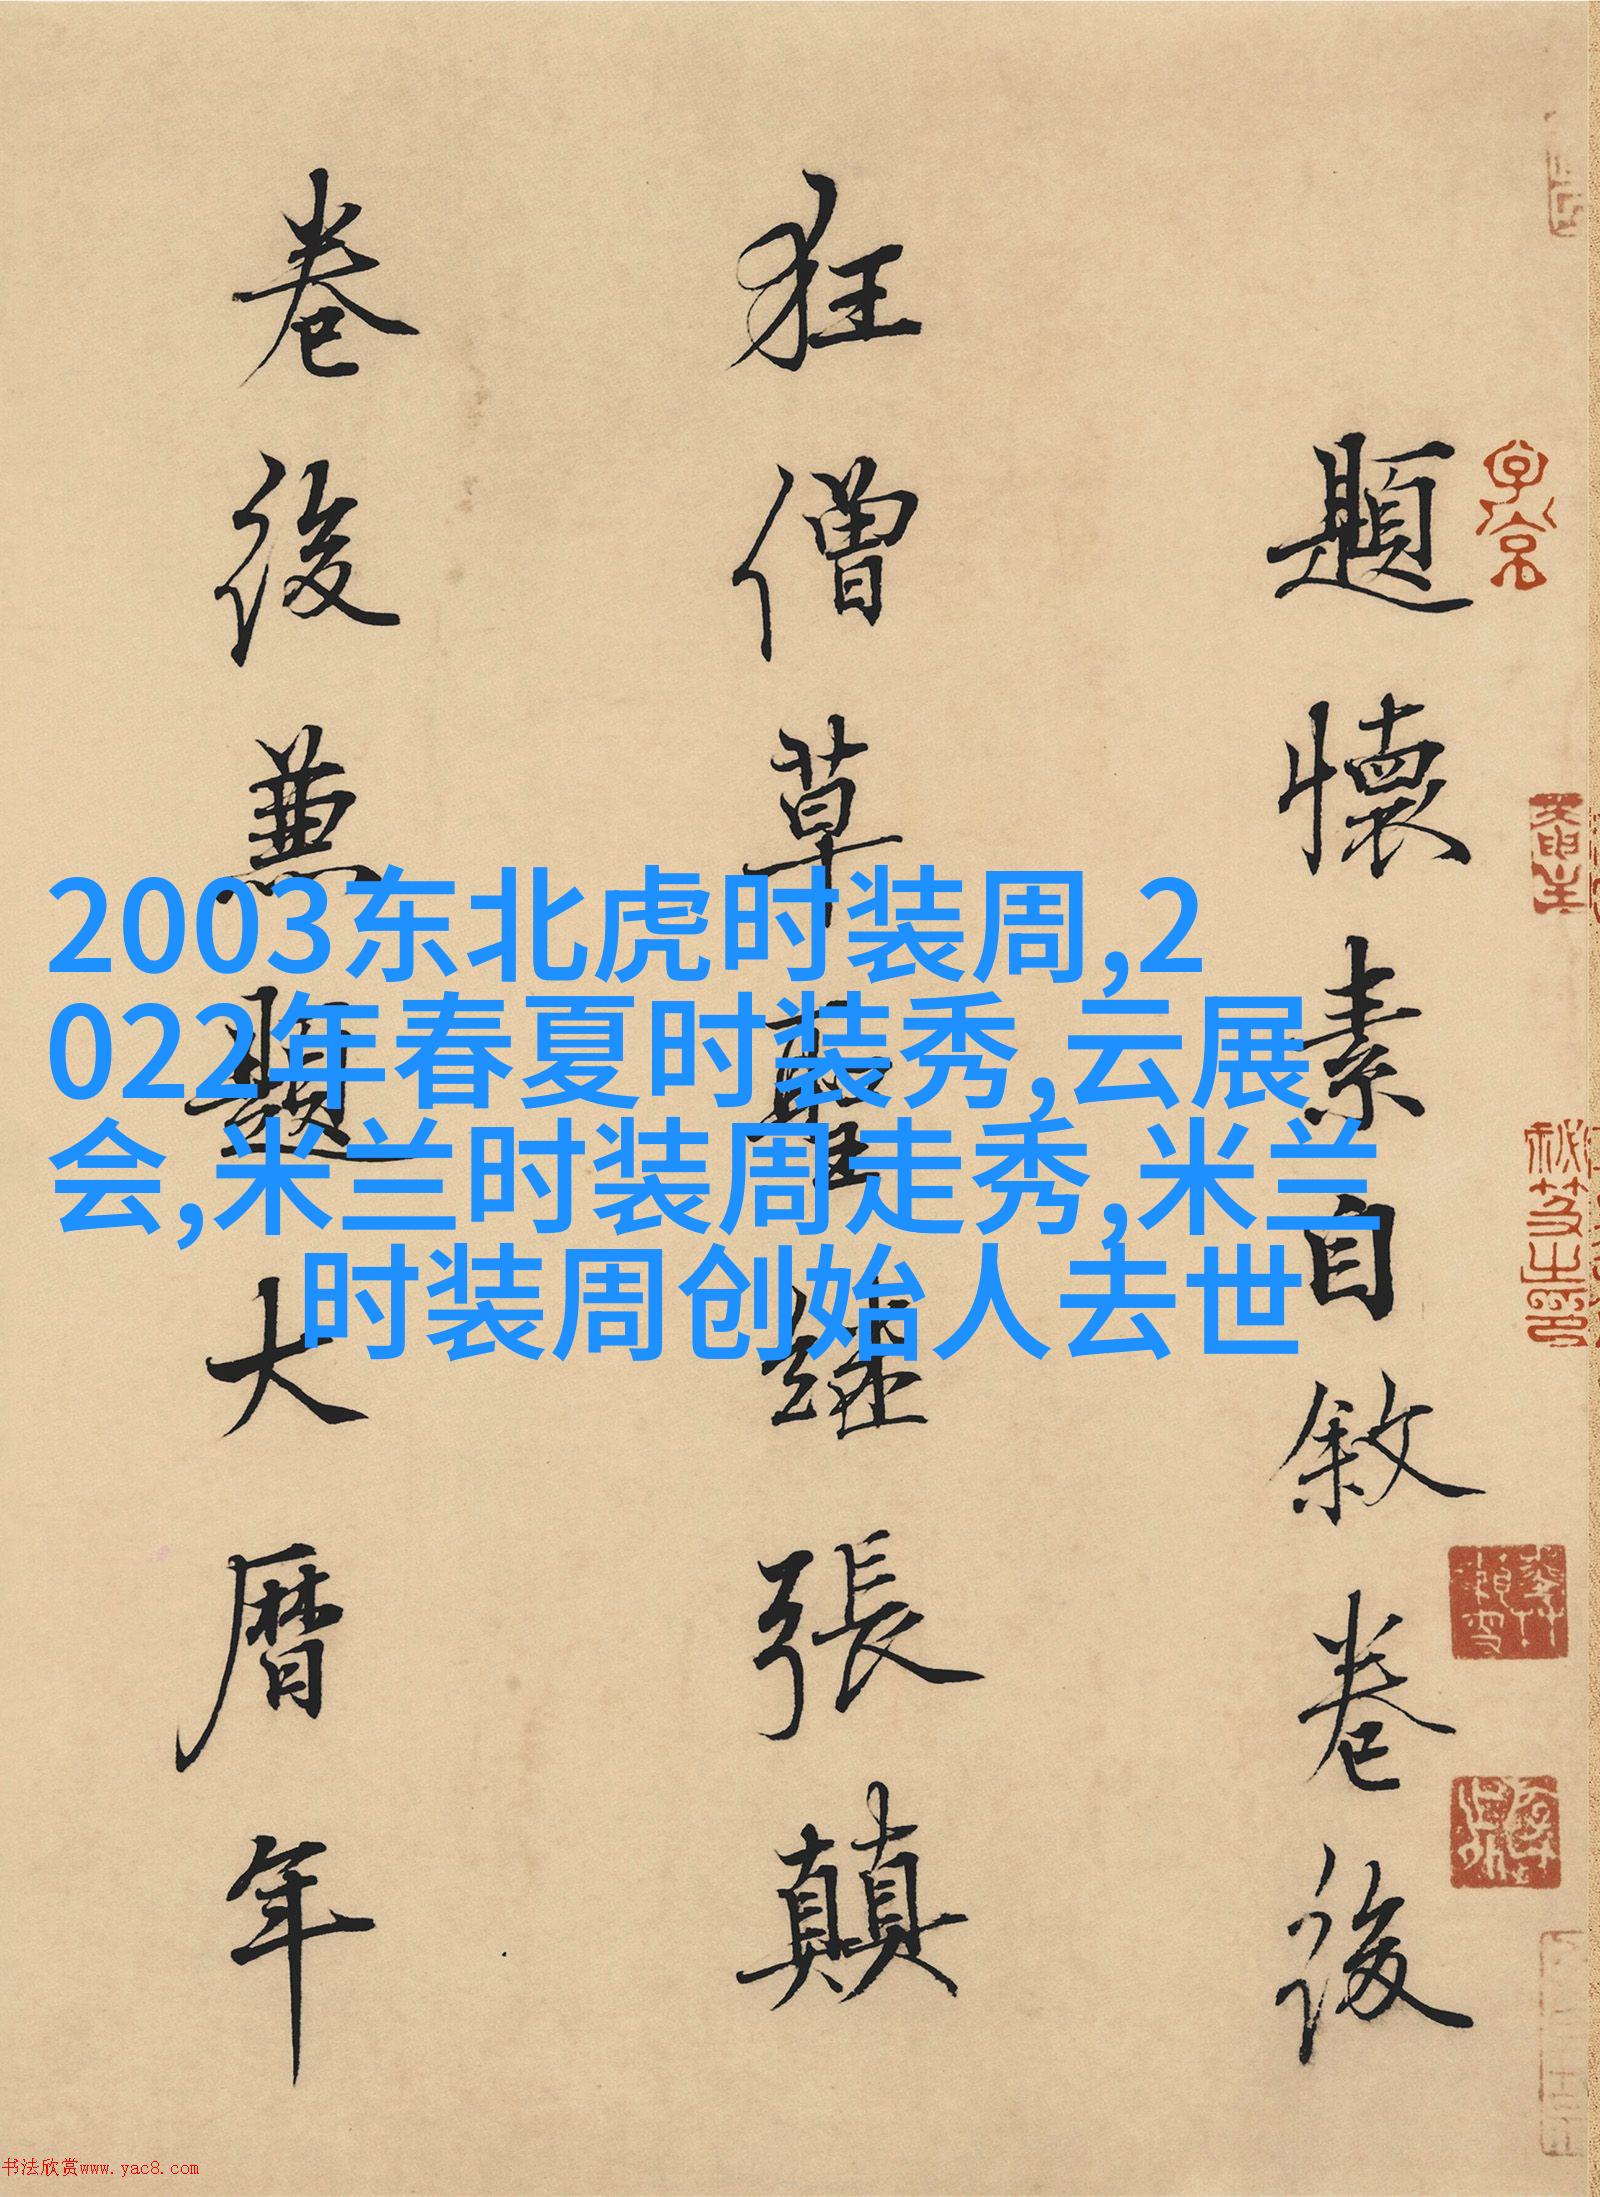 題懷素自敘卷後
狂僧草聖繼張顛
卷後兼題大曆年
2003东北虎时装周,2
022年春夏时装秀,云展
会,米兰时装周走秀,米兰
时装周创始人去世
书法欣赏www.yac8.com